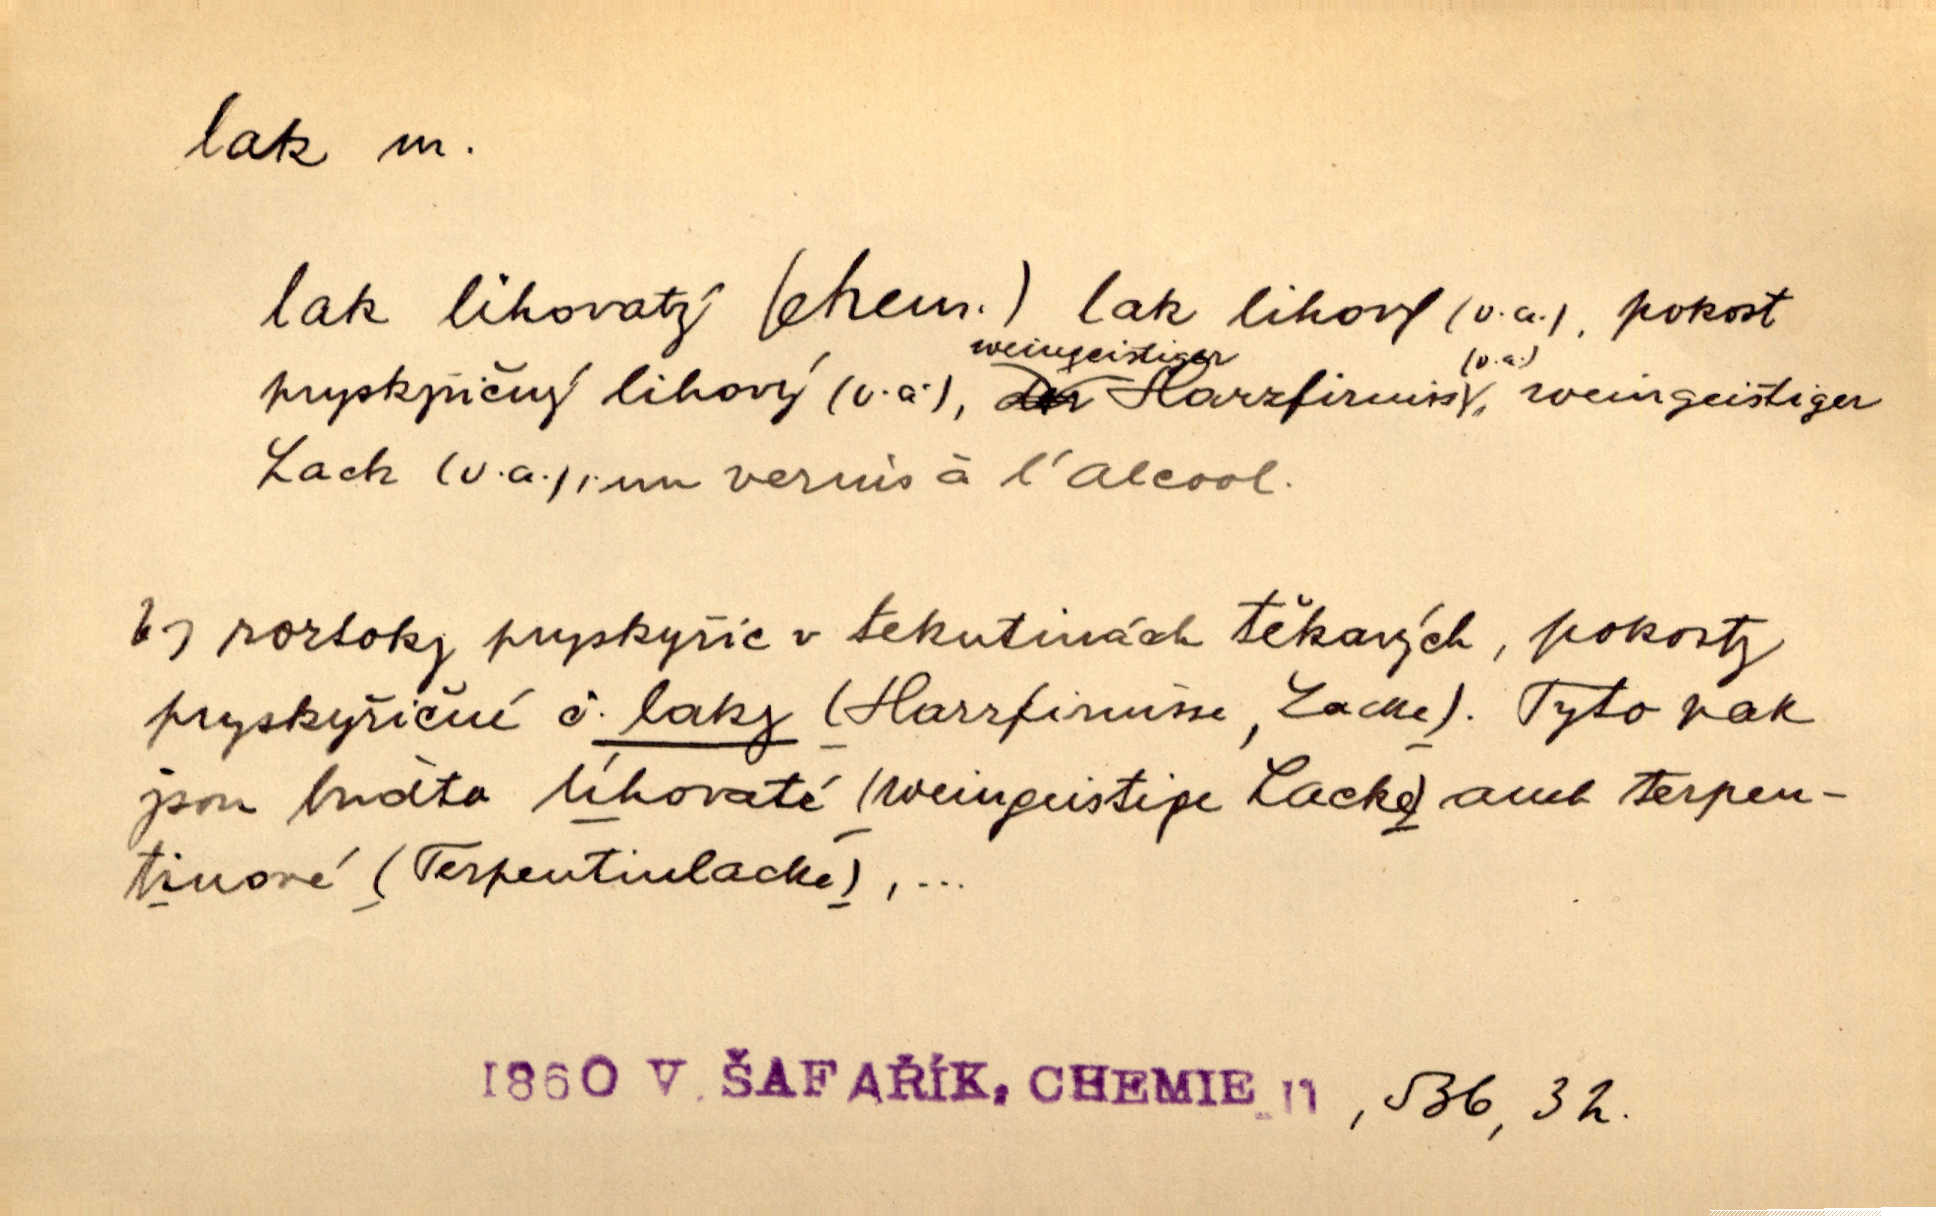 lak m.
lak lihovatý (chem.) lak lihový (v.a.), pokost
weingeistiger (v.a.)
pryskyřičný lihový (v.a.), Harzfirniss, weingeistiger
Lack (v.a.), un vernis à l'alcool.
b) roztoky pryskyřic v tekutinách těkavých, pokosty
pryskyřičné č. laky (Harzfirnisse, Lacke). Tyto pak
jsou buďto líhovaté (weingeistige Lacke) aneb terpen-
tinové (Terpentinlacke), ...
1860 V. ŠAFAŘÍK, CHEMIE II, 536, 32.